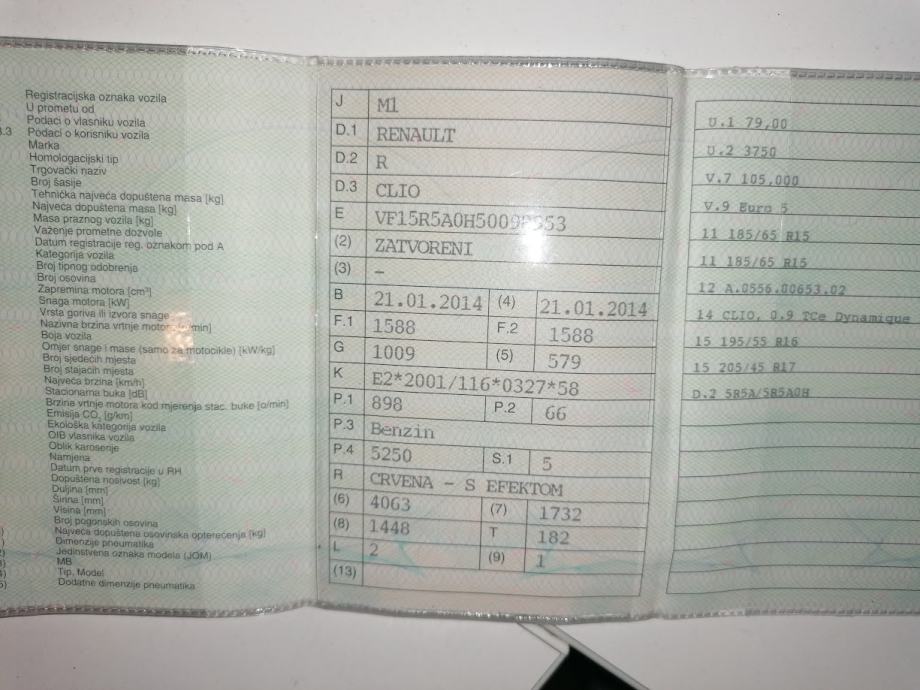 Registracijska oznaka vozila
U prometu od
Podaci o vlasniku vozila
3.3 Podaci o korisniku vozila
Marka
Homologacijski tip
Trgovački naziv
Broj šasije
Tehnička najveća dopuštena masa [kg]
Najveća dopuštena masa [kg]
Masa praznog vozila [kg]
Važenje prometne dozvole
Datum registracije reg. oznakom pod A
Kategorija vozila
Broj tipnog odobrenja
Broj osovina
Zapremina motora [cm³]
Snaga motora [kW]
Vrsta goriva ili izvora snage
Nazivna brzina vrtnje
Boja vozila
Omjer snage i mase (samo za motocikle) [kW/kg]
Broj sjedećih mjesta
Broj stajaćih mjesta
Najveća brzina [km/h]
Stacionarna buka [dB]
Brzina vrtnje motora kod mjerenja stac. buke [o/min]
Emisija CO₂ [g/km]
Ekološka kategorija vozila
OIB vlasnika vozila
Oblik karoserije
Namjena
Datum prve registracije u RH
Dopuštena nosivost [kg]
Duljina [mm]
Širina [mm]
Visina [mm]
Broj pogonskih osovina
Najveća dopuštena osovinska opterećenja [kg]
Dimenzije pneumatika
Jedinstvena oznaka modela (JOM)
MB
Tip, Model
Dodatne dimenzije pneumatika
J M1
D.1 RENAULT
D.2 R
D.3 CLIO
E
(2) ZATVORENI
(3) –
B 21.01.2014 (4) 21.01.2014
F.1 1588 F.2 1588
G 1009 (5) 579
K E2*2001/116*0327*58
P.1 898 P.2 66
P.3 Benzin
P.4 5250 S.1 5
R CRVENA – S EFEKTOM
(6) 4063 (7) 1732
(8) 1448 T 182
L 2 (9) 1
(13)
U.1 79,00
U.2 3750
V.7 105,000
V.9 Euro 5
11 185/65 R15
11 185/65 R15
12 A.0556.00653.02
14 CLIO, 0.9 TCe Dynamique
15 195/55 R16
15 205/45 R17
D.2 5R5A/5R5A0H